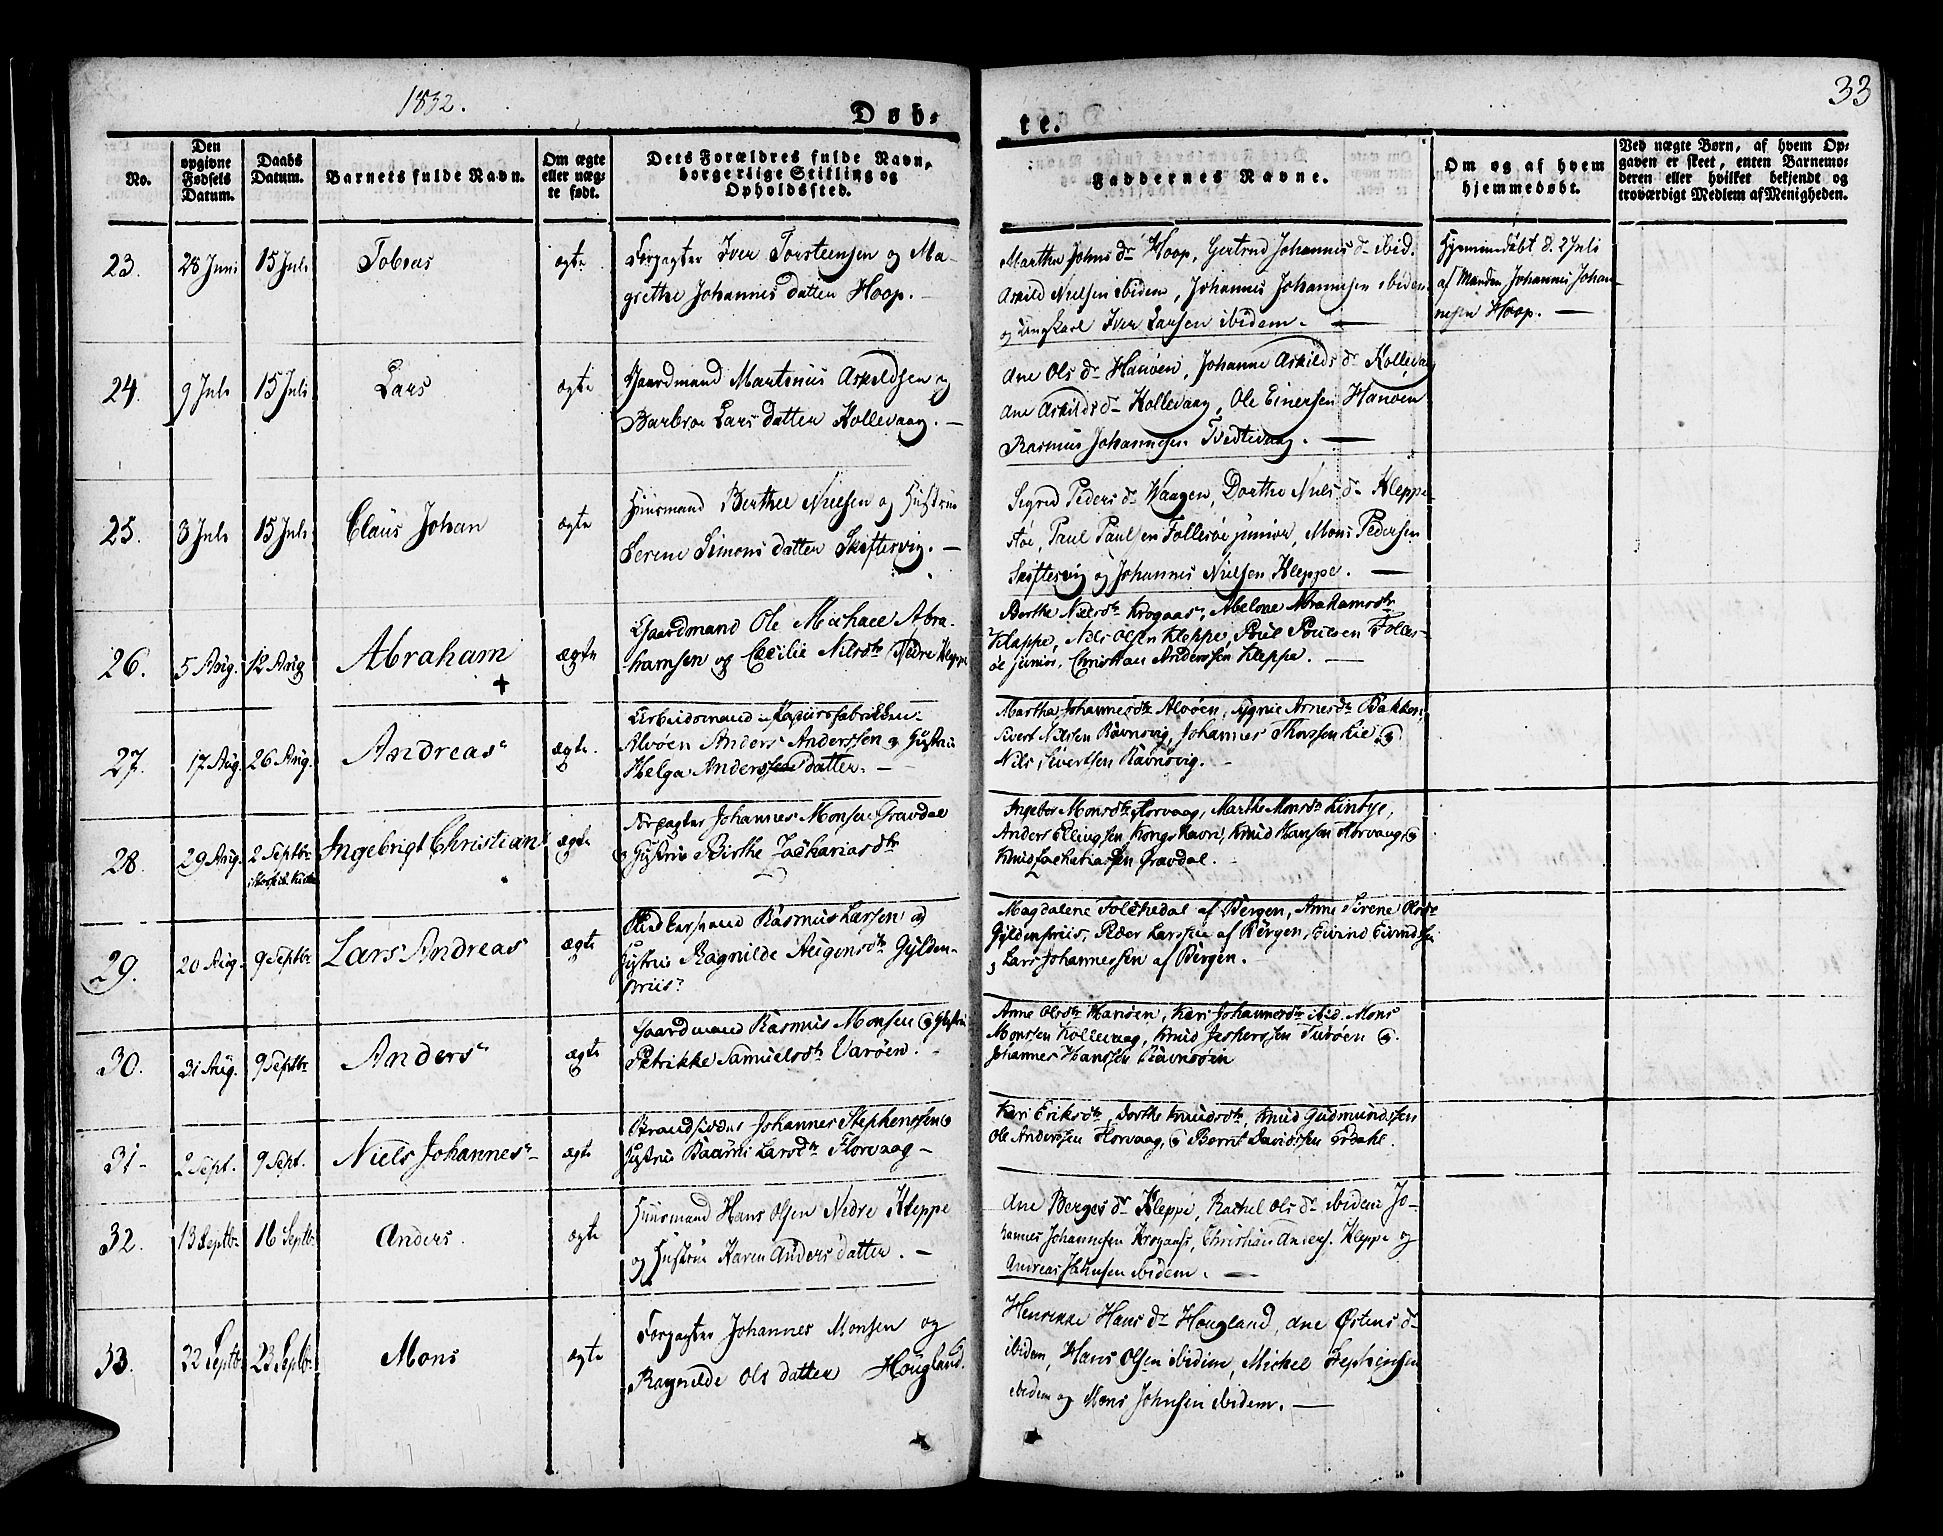 1832.
33
Døb-
te.
No.
Den opgivne Fødsels Datum.
Daabs Datum.
Barnets fulde Navn.
Om ægte eller uægte født.
Dets Forældres fulde Navn, borgerlige Stilling og Opholdssted.
Faddernes Navne.
Om og af hvem hjemmedøbt.
Ved uægte Børn, af hvem Opgaven er skeet, enten Barnemoderen eller hvilket bekjendt og troværdigt Medlem af Menigheden.
23. 28 Juni 15 Juli Tobias ægte
Forpagter Iver Torsteinsen og Ma-
grethe Johannes datter Hoop. —
Martha Johns dr Hoop, Gertrud Johannis dr ibid.
Askild Nielsen ibidem, Johannes Johannesen ibidem
og Ungkarl Iver Larsen ibidem. —
Hjemmedøbt d. 2 Juli
af Manden Johannis Johan-
nesen Hoop. —
24. 9 Juli 15 Juli Lars ægte
Gaardmand Martinus Askildsen og
Barbroe Lars datter Kollevaag. —
Ane Ols dr Hanøen, Johanne Askilds dr Kollevaag
Ane Askilds dr Kollevaag, Ole Einersen Hanøen
Rasmus Johannesen Tvedtevaag. —
25. 3 Juli 15 Juli Claus Johan ægte
Huusmand Berthel Nielsen og Hustrue
Serene Simons datter Skiftesvig. —
Sigred Peders dr Waagen, Dorthe Niels dr Kleppe-
støe, Paul Paulsen Follesøe junior, Mons Pedersen
Skiftesvig og Johannes Nielsen Kleppe. —
26. 5 Aug. 12 Aug Abraham ægte
+
Gaardmand Ole Michael Abra-
hamsen og Cecilie Nilsdtr Nedre Kleppe
Berthe Nielsdtr Krogaas, Abelone Abrahamsdtr
Kleppe, Nils Olsen Kleppe, Poul Poulsen Folles-
øe junior, Christian Anderssen Kleppe. —
27. 17 Aug. 26 Aug. Andreas ægte.
Arbeidsmand v. Papiirsfabrikken
Alvøen Anders Anderssen og Hustrue
Helga Anderssen datter. —
Martha Johannesdtr Alvøen, Sygnie Arnesdtr Bakken,
Sivert Nilsen Ravnsvig, Johannes Thorssen Lie, og
Nils Sivertsen Ravnsvig. —
28. 29 Aug. 2 Septbr Ingebrigt Christian ægte
Forpagter Johannes Monsen Gravdal
og Hustrue Birthe Zachariasdtr
Ingebor Monsdtr Florvaag, Marthe Monsdtr Lindøe,
Anders Ellingsen Kongshavn, Knud Hansen Florvaag og
Knud Zachariassen Gravdal. —
29. 20 Aug. 9 Septbr Lars Andreas ægte
Rasmus Larsen og
Hustrue Ragnilde Augonsdtr Gylden-
priis.
Magdalene Folkedal af Bergen, Anne Sirene Olsdtr
Gyldenpriis, Peder Larssen af Bergen, Eivind Eivindssen
og Lars Johannessen af Bergen.
30. 31 Aug. 9 Septbr Anders ægte
Gaardmand Rasmus Monsen og Hustrue
Petrikke Samuelsdtr Varøen. —
Anne Olsdtr Hanøen, Kari Johannesdtr ibid. Mons
Monsen Kollevaag, Knud Jespersen Turøen og
Johannes Hanssen Ravnøen
31- 2 Sept. 9 Sept. Niels Johannes- ægte
Strandsidder Johannes Stephenssen og
Hustrue Larsdtr Florvaag —
Kari Eriksdtr, Dorthe Knudsdtr, Knud Gudmundssen
Ole Anderssen Florvaag, og Bernt Davidssen Erdahl.
32. 13 Septbr 16 Septbr Anders. ægte
Huusmand Hans Olsen Nedre Kleppe
og Hustrue Karen Anders datter. —
Ane Berges dr Kleppe, Rachel Ols dr ibidem Jo-
hannes Johannesen Krogaas, Christian Anders. Kleppe og
Andreas Johnsen ibidem. —
33. 22 Septbr 23 Septbr Mons ægte
Forpagter Johannes Monsen og
Ragnilde Ols datter Hougland.
Henrikke Hans dr Hougland, Ane Østens dr
ibidem, Hans Olsen ibidem, Michel Stephensen
ibidem og Mons Johnsen ibidem. —